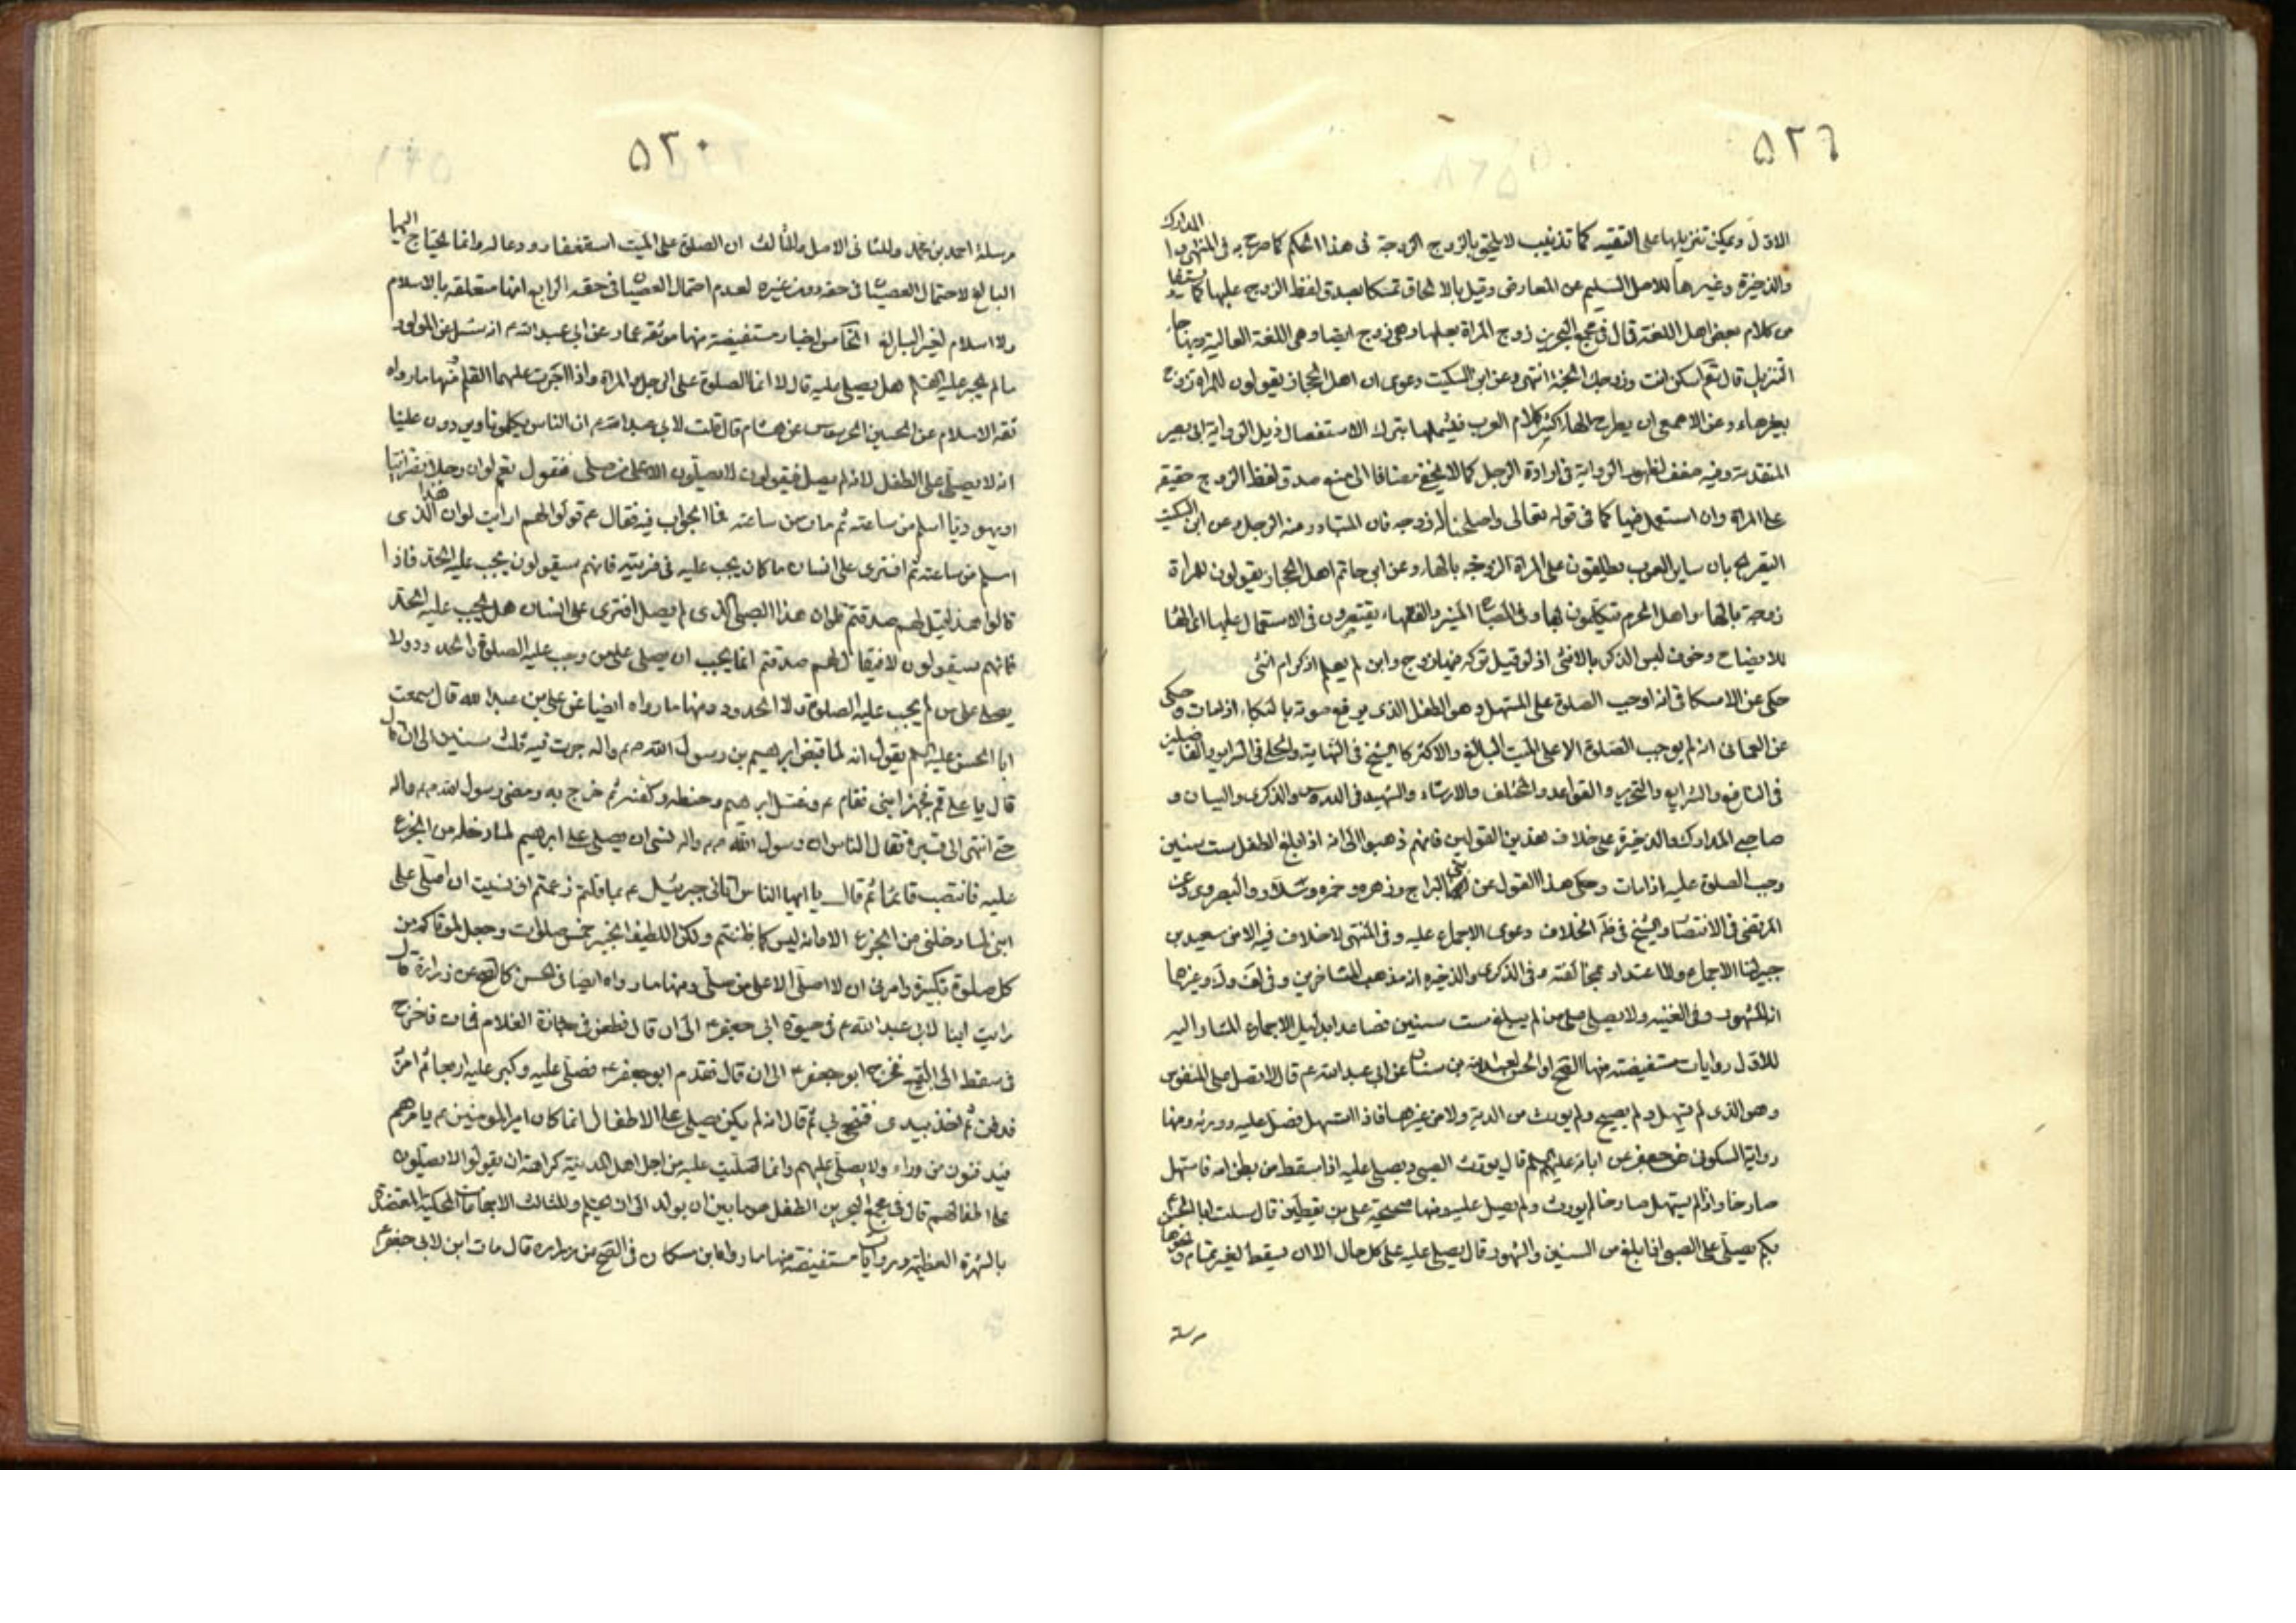 ٥٢٦
الاول ويمكن تنزيلها على التقيه كما تذنيب لا يلحق بالزوج الزوجة فى هذا الحكم كما صرح به فى المنتهى و المدارك
والذخيرة وغيرها للاصل السليم عن المعارض وقيل بالالحاق تمسكا بصدق لفظ الزوج عليها كما
من كلام بعض اهل اللغة قال فى مجمع البحرين زوج المراة بعلها وهى زوج ايضا وهى اللغة العالية وبها جاء
التنزيل قال تعم اسكن انت وزوجك الجنة انتهى وعن ابن السكيت دعوى ان اهل الحجاز يقولون للمراة زوج
بغير هاء وعن الاصمعى اكثر كلام العرب بترك الاستفصال فى ذيل الرواية ابى بصير
المتقدمة وفيه ضعف لظهور الرواية فى ارادة الرجل كما لا يخفى مضافا الى منع صدق لفظ الزوج حقيقه
على المراة وان استعمل فيها كما فى قوله تعالى واصلحنا له زوجه فان المتبادر منه الرجل وعن ابن السكيت
التصريح بان ساير العرب يطلقون على المراة الزوجه بالهاء وعن ابى حاتم اهل الحجاز يقولون للمراة
زوجة بالهاء واهل الحرم يتكلمون بها وفى المصباح المنير والفقهاء يقتصرون فى الاستعمال عليها
للايضاح وخوف لبس الذكر بالانثى اذ لو قيل تركه فيها زوج وابن لم يعلم اذكر ام انثى
حكى عن الاسكافى انه اوجب الصلوة على المستهل وهو الطفل الذى يرفع صوته بالبكاء اذا مات وحكى
عن العمانى انه لم يوجب الصلوة الا على الميت البالغ والاكثر كالشيخ فى النهاية والحلى فى السراير والفاضلين
فى النافع والشرايع والتحرير والقواعد والمختلف والارشاد والشهيد فى الدروس والذكرى والبيان و
صاحبى المدارك والذخيرة على خلاف هذين القولين فانهم ذهبوا الى انه اذا بلغ الطفل ست سنين
وجب الصلوة عليه اذا مات وحكى هذا القول عن البراج وزهره وحمزه وسلار والبصروى وعن
المرتضى فى الانتصار والشيخ فى ظاهر الخلاف دعوى الاجماع عليه وفى المنتهى لا خلاف فيه الا من سعيد بن
جبير لنا الاجماع ولا اعتداد بمخالفته وفى الذكرى والذخيره انه مذهب المتاخرين وفى لف وك وغيرهما
انه المشهور وفى الغنيه ولا يصلى على من لم يبلغ ست سنين فصاعدا بدليل الاجماع المشار اليه
للاول روايات مستفيضة منها الصحيح او الحسن لعبد الله بن سنان عن ابى عبد الله ع قال لا تصل على المنفوس
وهو الذى لم يستهل ولم يصيح ولم يورث من الدية ولا من غيرها فاذا استهل فصل عليه وورثه ومنها
رواية السكونى عن جعفر عن ابائه عليهم السلم قال يورث الصبى ويصلى عليه اذا سقط من بطن امه فاستهل
صارخا واذا لم يستهل صارخا لم يورث ولم يصل عليه ومنها صحيحة على بن يقطين قال سئلت ابا الحسن ع
بكم يصلى على الصبى اذا بلغ من السنين والشهور قال يصلى عليه على كل حال الا ان يسقط لغير تمام ونحوها
مرسلة
٥٢٠
مرسلة احمد بن محمد وللثانى الاصل والثالث ان الصلوة على الميت استغفار ودعا له وانما يحتاج اليهما
البالغ لاحتمال العصيان فى حقه دون غيره لعدم احتمال العصيان فى حقه الرابع انها متعلقه بالاسلام
ولا اسلام لغير البالغ الخامس اخبار مستفيضة منها موثقه عمار عن ابى عبد الله ع انه سئل عن المولود
ما لم يجر عليه القلم هل يصلى عليه قال لا انما الصلوة على الرجل والمراة واذا جرى عليهما القلم ومنها ما رواه
ثقة الاسلام عن الحسين عن هشام قال قلت لابى عبد الله ع ان الناس يكلمونا ويردون علينا
انه لا يصلى على الطفل لانه لم يصل فيقولون لا يصلون الا على من صلى فنقول نعم لو ان رجلا نصرانيا
او يهوديا اسلم من ساعته ثم مات من ساعته فما الجواب فيه فقال ع قولوا لهم ارايت لو ان هذا الذى
اسلم من ساعته ثم افترى على انسان ما كان يجب عليه فى فريته فانهم سيقولون يجب عليه الحد فاذا
قالوا هذا قيل لهم صدقتم فلو ان هذا الصبى الذى لم يصل افترى على انسان هل يجب عليه الحد
فانهم سيقولون لا فيقال لهم صدقتم انما يجب ان يصلى على من وجب عليه الصلوة والحدود ولا
يصلى على من لم يجب عليه الصلوة ولا الحدود ومنها ما رواه ايضا عن على بن عبد الله قال سمعت
ابا الحسن عليه السلم يقول انه لما قبض ابرهيم بن رسول الله ص واله جرت فيه ثلث سنين الى ان قال
قال يا على قم فجهز ابنى فقام ع فغسل ابرهيم وحنطه وكفنه ثم خرج به ومضى رسول الله ص واله
حتى انتهى الى قبره فقال الناس ان رسول الله ص واله نسى ان يصلى على ابرهيم لما دخله من الجزع
عليه فانتصب قائما ثم قال يا ايها الناس اتانى جبرئيل ع بما قلتم زعمتم انى نسيت ان اصلى على
ابنى لما دخلنى من الجزع الا وانه ليس كما ظننتم ولكن اللطيف الخبير خمس صلوات وجعل لموتاكم من
كل صلوة تكبيرة وامرنى ان لا اصلى الا على من صلى ومنها ما رواه ايضا فى الحسن كالصحيح عن زرارة قال
رايت ابنا لابى عبد الله ع فى حيوة ابى جعفر ع الى ان قال فطعن فى جنازة الغلام فمات فاخرج
فى سفط الى البقيع فخرج ابو جعفر ع الى ان قال فتقدم ابو جعفر ع فصلى عليه وكبر عليه اربعا ثم امر
فدفن ثم اخذ بيدى فتنحى بى ثم قال انه لم يكن يصلى على الاطفال انما كان امير المومنين ع يامرهم
فيدفنون من وراء ولا يصلى عليهم وانما صليت عليه من اجل اهل المدينة كراهة ان يقولوا لا يصلون
على اطفالهم قال فى مجمع البحرين الطفل ما بين ان يولد الى ان يحتلم وللثالث الاجماعات المحكية المعتضدة
بالشهرة العظيمة وروايات مستفيضة منها ما رواه ابن مسكان فى الصحيح عن زراره قال مات ابن لابى جعفر ع